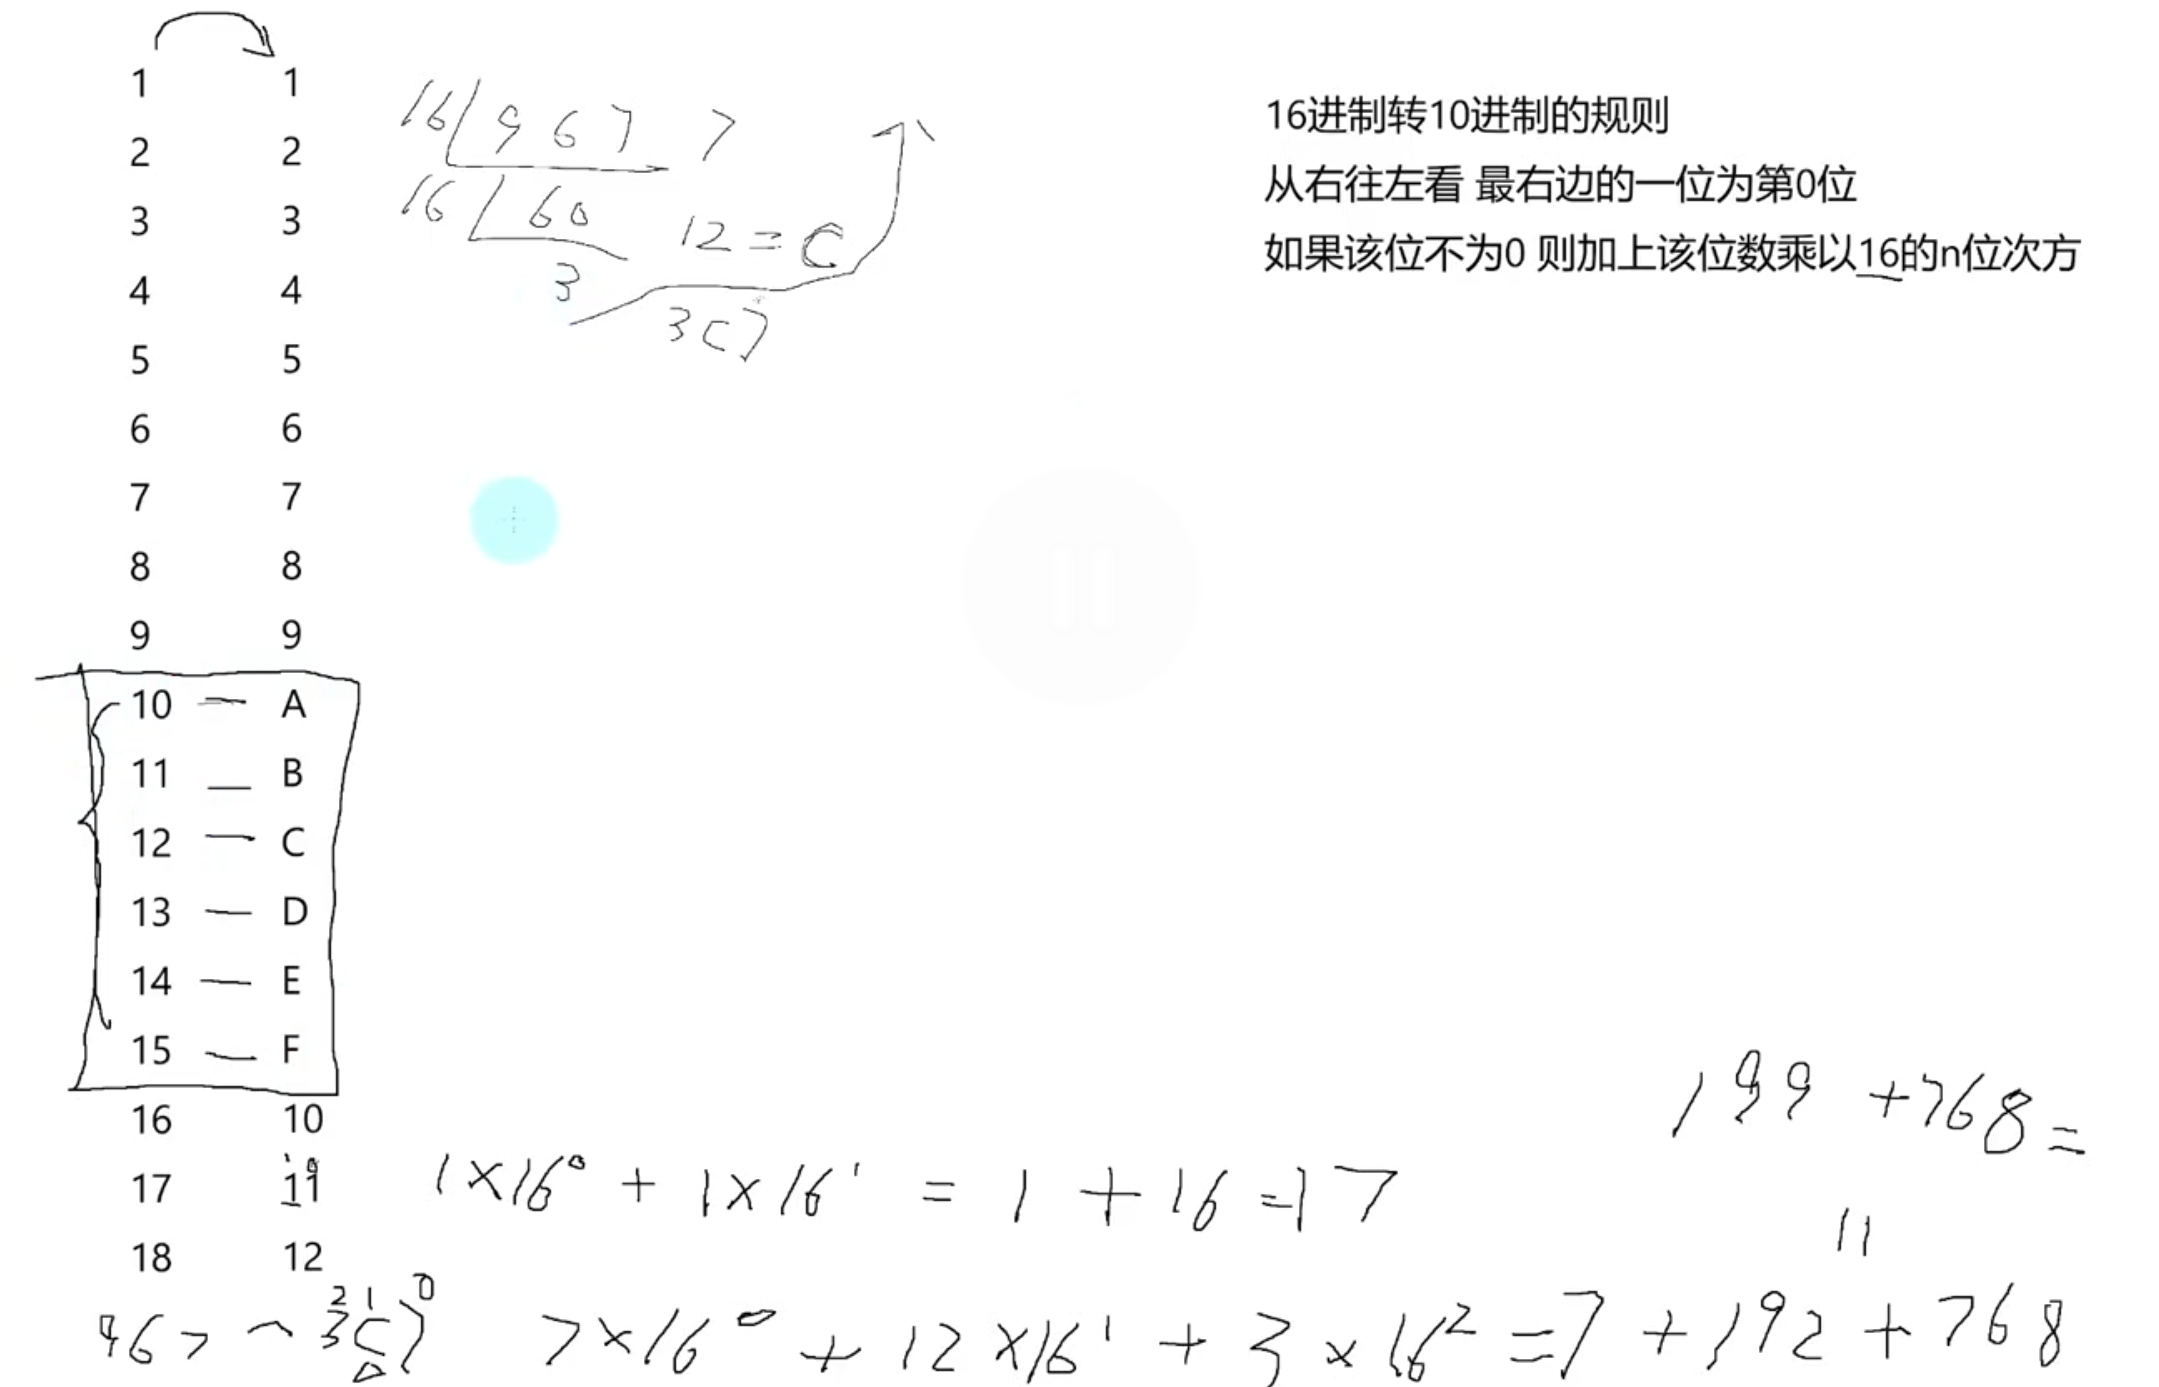 1 1
2 2
3 3
4 4
5 5
6 6
7 7
8 8
9 9
10 — A
11 — B
12 — C
13 — D
14 — E
15 — F
16 10
17 11
18 12
967 3C7
2 1 0
16 967 7
16 60 12 = C
3
3C7
16进制转10进制的规则
从右往左看 最右边的一位为第0位
如果该位不为0 则加上该位数乘以16的n位次方
1×16⁰ + 1×16¹ = 1 + 16 = 17
199 + 768 =
11
7×16⁰ + 12×16¹ + 3×16² = 7 + 192 + 768